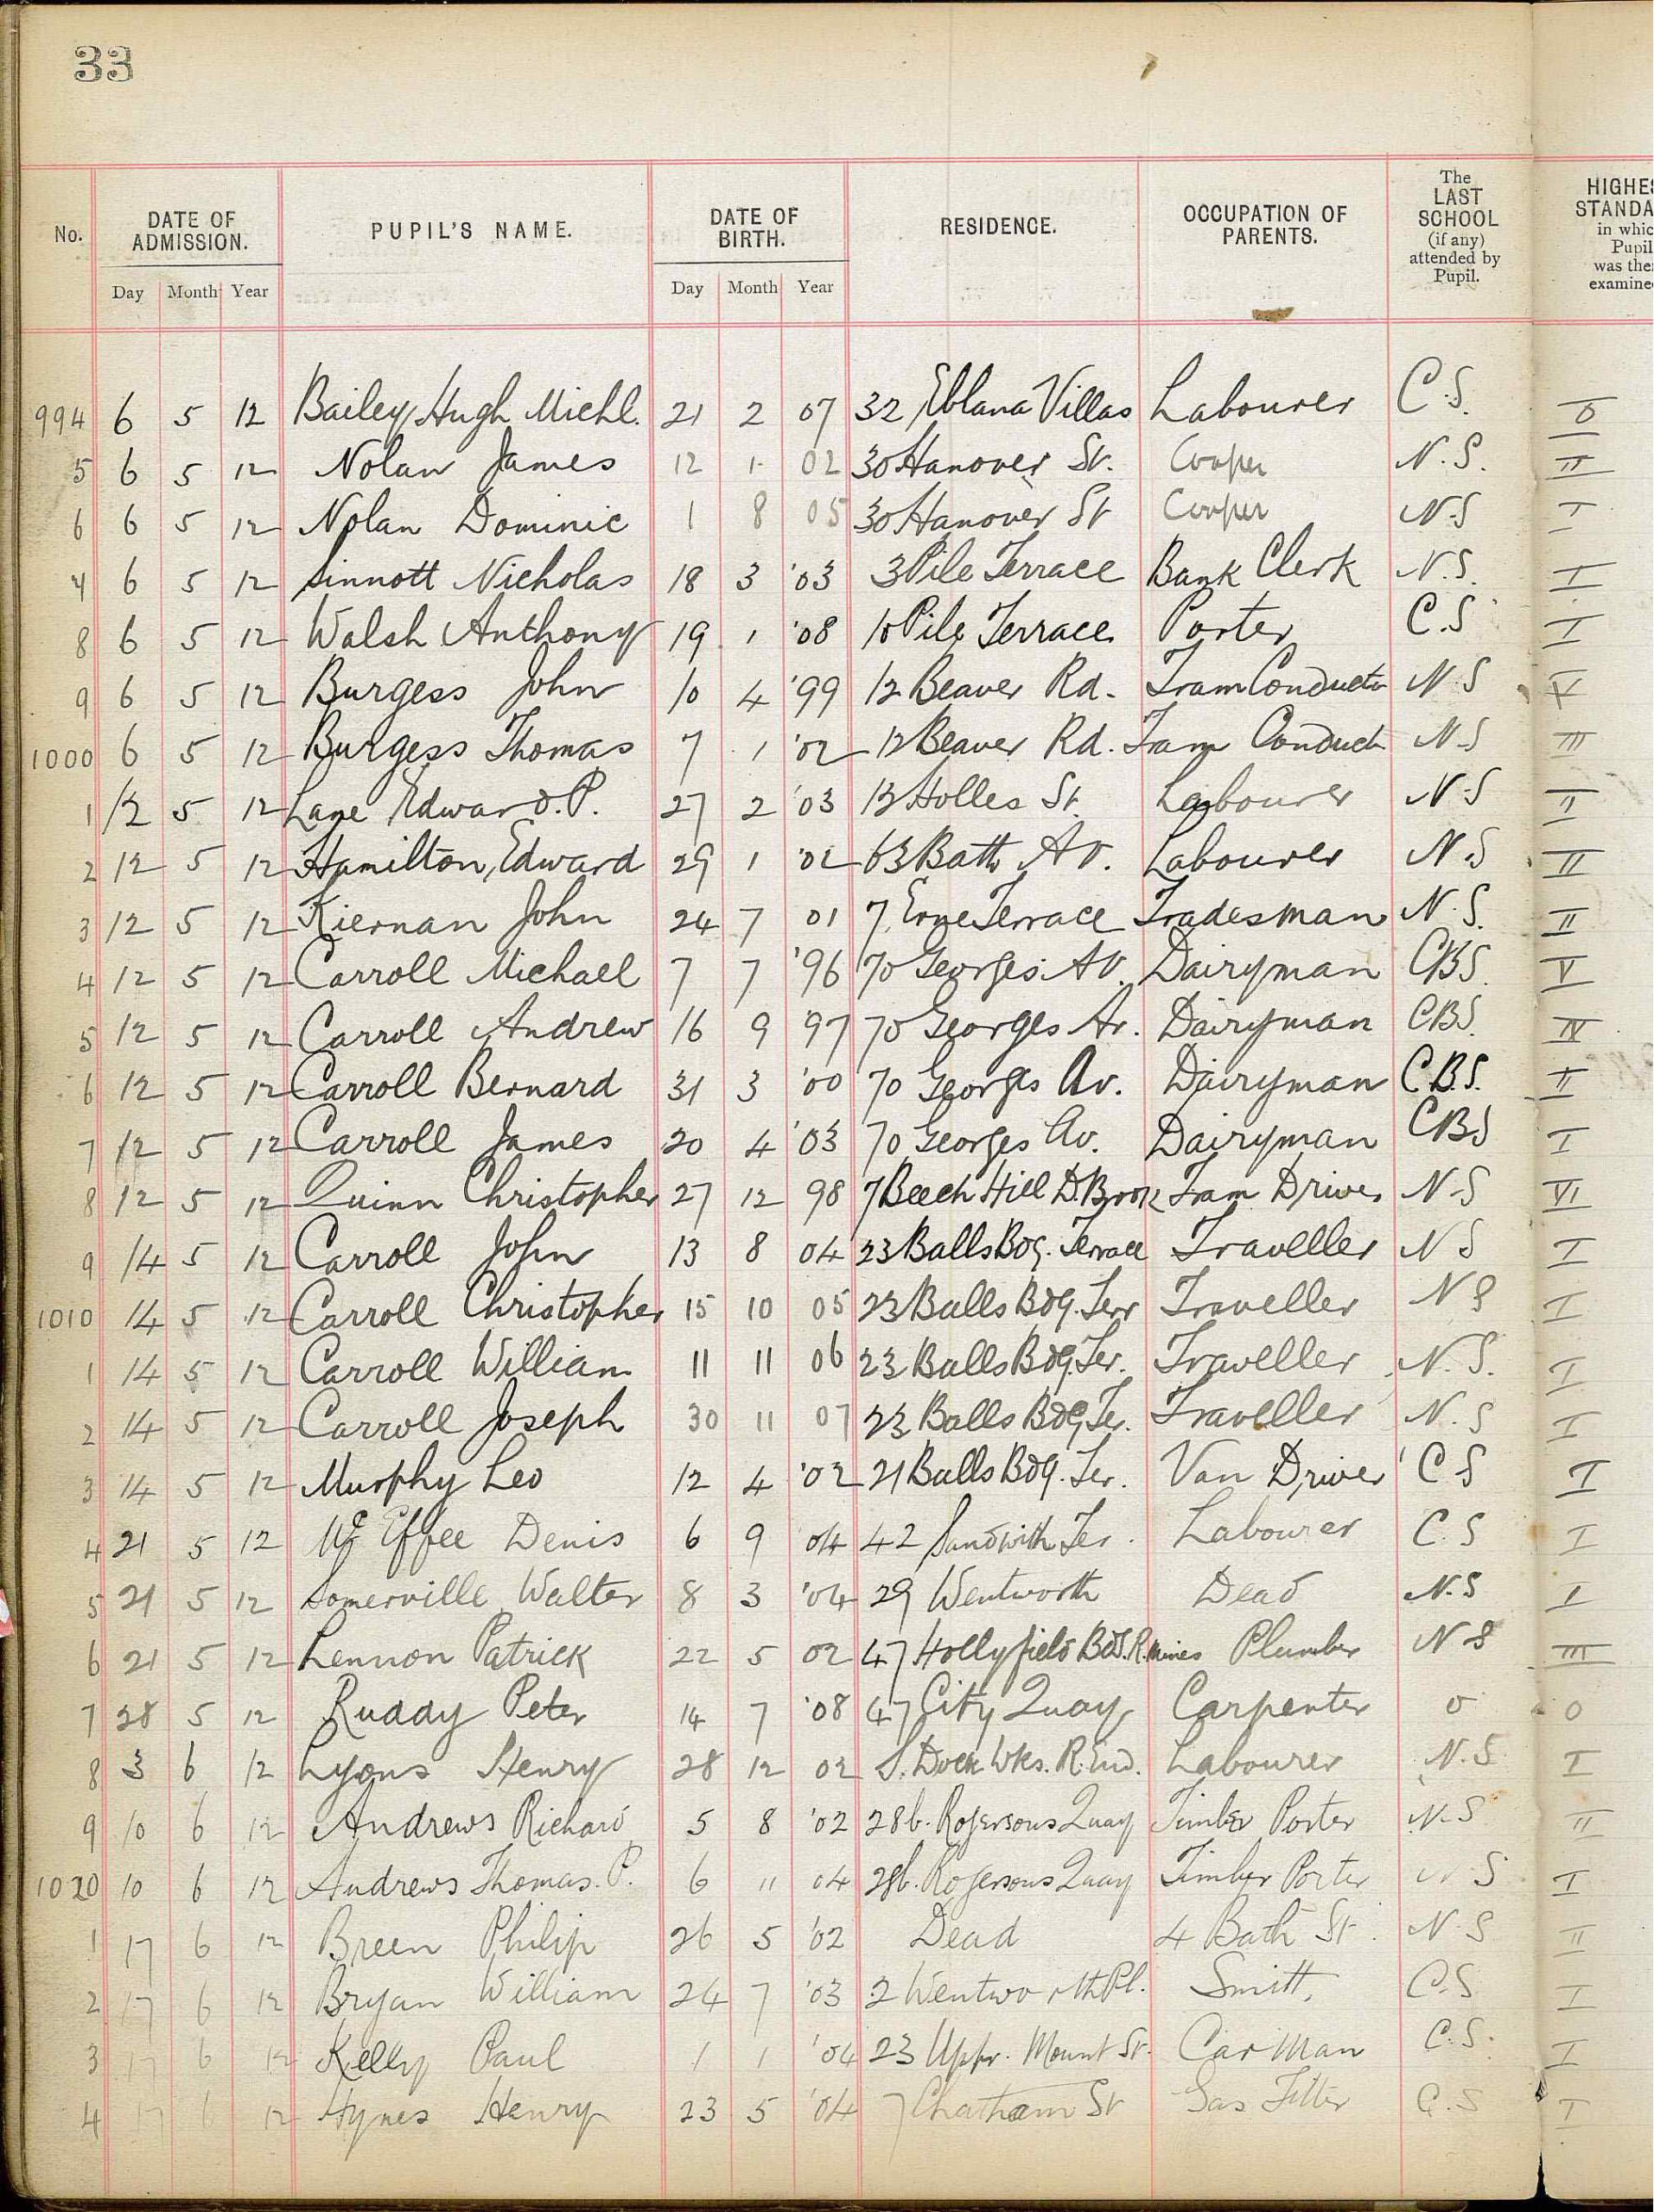 33
No. DATE OF ADMISSION. PUPIL'S NAME. DATE OF BIRTH. RESIDENCE. OCCUPATION OF PARENTS. The LAST SCHOOL (if any) attended by Pupil. HIGHES STANDA in whic Pupil was the examine
Day Month Year Day Month Year
994 6 5 12 Bailey, Hugh Michl. 21 2 07 32 Eblana Villas Labourer C.S. 0
5 6 5 12 Nolan James 12 1 02 30 Hanover St. Cooper N.S. II
6 6 5 12 Nolan Dominic 1 8 05 30 Hanover St Cooper N.S I
7 6 5 12 Sinnott Nicholas 18 3 '03 3 Pile Terrace Bank Clerk N.S. I
8 6 5 12 Walsh Anthony 19 1 '08 10 Pile Terrace Porter C.S I
9 6 5 12 Burgess John 10 4 '99 12 Beaver Rd. Tram Conductr N.S V
1000 6 5 12 Burgess Thomas 7 1 '02 12 Beaver Rd. Tram Conduct N.S III
1 12 5 12 Lane Edward.P. 27 2 '03 13 Holles St. Labourer N.S II
2 12 5 12 Hamilton, Edward 29 1 '02 63 Bath Av. Labourer N.S II
3 12 5 12 Kiernan John 24 7 01 7, Erne Terrace Tradesman N.S. II
4 12 5 12 Carroll Michael 7 7 '96 70 Georges Av. Dairyman CBS. V
5 12 5 12 Carroll Andrew 16 9 '97 70 Georges Av. Dairyman CBS. IV
6 12 5 12 Carroll Bernard 31 3 '00 70 Georges Av. Dairyman C.B.S. II
7 12 5 12 Carroll James 20 4 '03 70 Georges Av. Dairyman CBS I
8 12 5 12 Quinn Christopher 27 12 98 7 Beech Hill D.Brook Tram Driver N.S VI
9 14 5 12 Carroll John 13 8 04 23 Balls Bdg. Terrace Traveller N S I
1010 14 5 12 Carroll Christopher 15 10 05 23 Balls Bdg. Terr Traveller N S I
1 14 5 12 Carroll William 11 11 06 23 Balls Bdg. Ter. Traveller N.S. I
2 14 5 12 Carroll Joseph 30 11 07 23 Balls Bdg. Ter. Traveller N.S I
3 14 5 12 Murphy Leo 12 4 '02 21 Balls Bdg. Ter. Van Driver C S I
4 21 5 12 Mc Effee Denis 6 9 04 42 Sandwith Ter. Labourer C.S I
5 21 5 12 Somerville Walter 8 3 '04 29 Wentworth Dead N.S I
6 21 5 12 Lennon Patrick 22 5 02 47 Hollyfield Bds. R.mines Plumber N S III
7 28 5 12 Ruddy Peter 14 7 '08 47 City Quay Carpenter 0 0
8 3 6 12 Lyons Henry 28 12 02 S. Dock Wks. R.End. Labourer N.S. I
9 10 6 12 Andrews Richard 5 8 '02 28b. Rogersons Quay Timber Porter N.S II
1020 10 6 12 Andrews Thomas. P. 6 11 04 28b. Rogersons Quay Timber Porter N.S I
1 17 6 12 Breen Philip 26 5 '02 Dead 4 Bath St. N.S II
2 17 6 12 Bryan William 24 7 '03 2 Wentworth Pl. Smith, C.S I
3 17 6 12 Kelly Paul 1 1 '04 23 Uppr. Mount St. Carman C.S. I
4 17 6 12 Hynes Henry 23 5 '04 7 Chatham St Gas Fitter C.S I